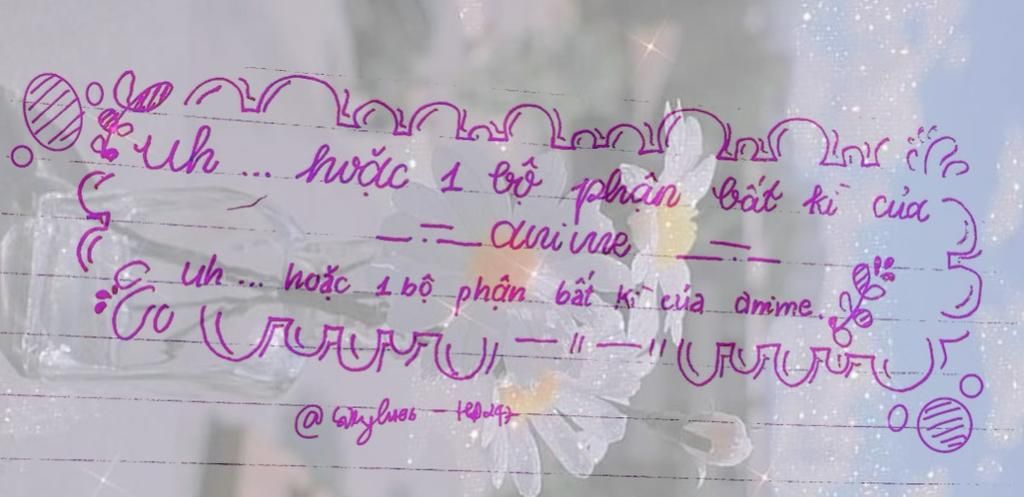 uh ... hoặc 1 bộ phận bất kì của
anime
uh ... hoặc 1 bộ phận bất kì của anime.